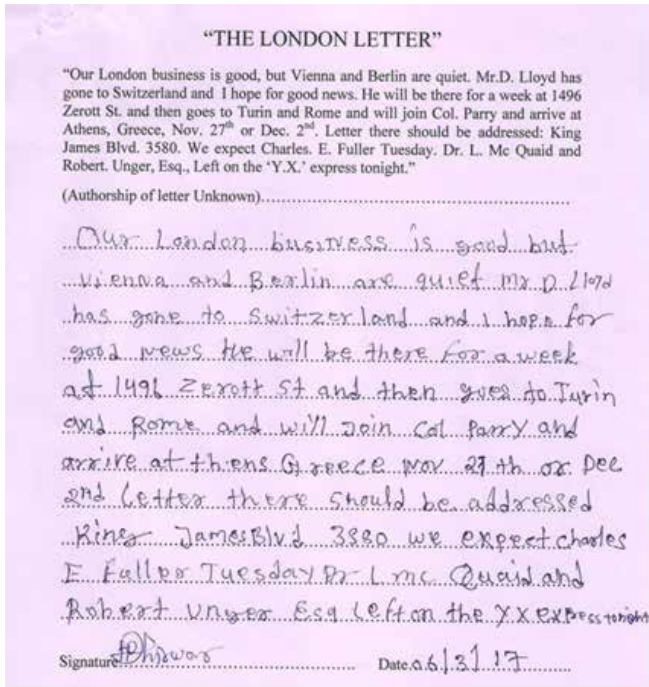 “THE LONDON LETTER”
“Our London business is good, but Vienna and Berlin are quiet. Mr.D. Lloyd has
gone to Switzerland and I hope for good news. He will be there for a week at 1496
Zerott St. and then goes to Turin and Rome and will join Col. Parry and arrive at
Athens, Greece, Nov. 27th or Dec. 2nd. Letter there should be addressed: King
James Blvd. 3580. We expect Charles. E. Fuller Tuesday. Dr. L. Mc Quaid and
Robert. Unger, Esq., Left on the ‘Y.X.’ express tonight.”
(Authorship of letter Unknown)
Our London business is good but
vienna and Berlin are quiet Mr D Lloyd
has gone to Switzerland and I hope for
good news He will be there for a week
at 1496 Zerott St and then goes to Turin
and Rome and will Join Col Parry and
arrive at thens Greece Nov 27 th or Dec
2nd Letter there should be addressed
King James Blvd 3580 we expect charles
E Fuller Tuesday Dr L mc Quaid and
Robert Unger Esq Left on the YX express tonight
Signature
Date 06/3/17